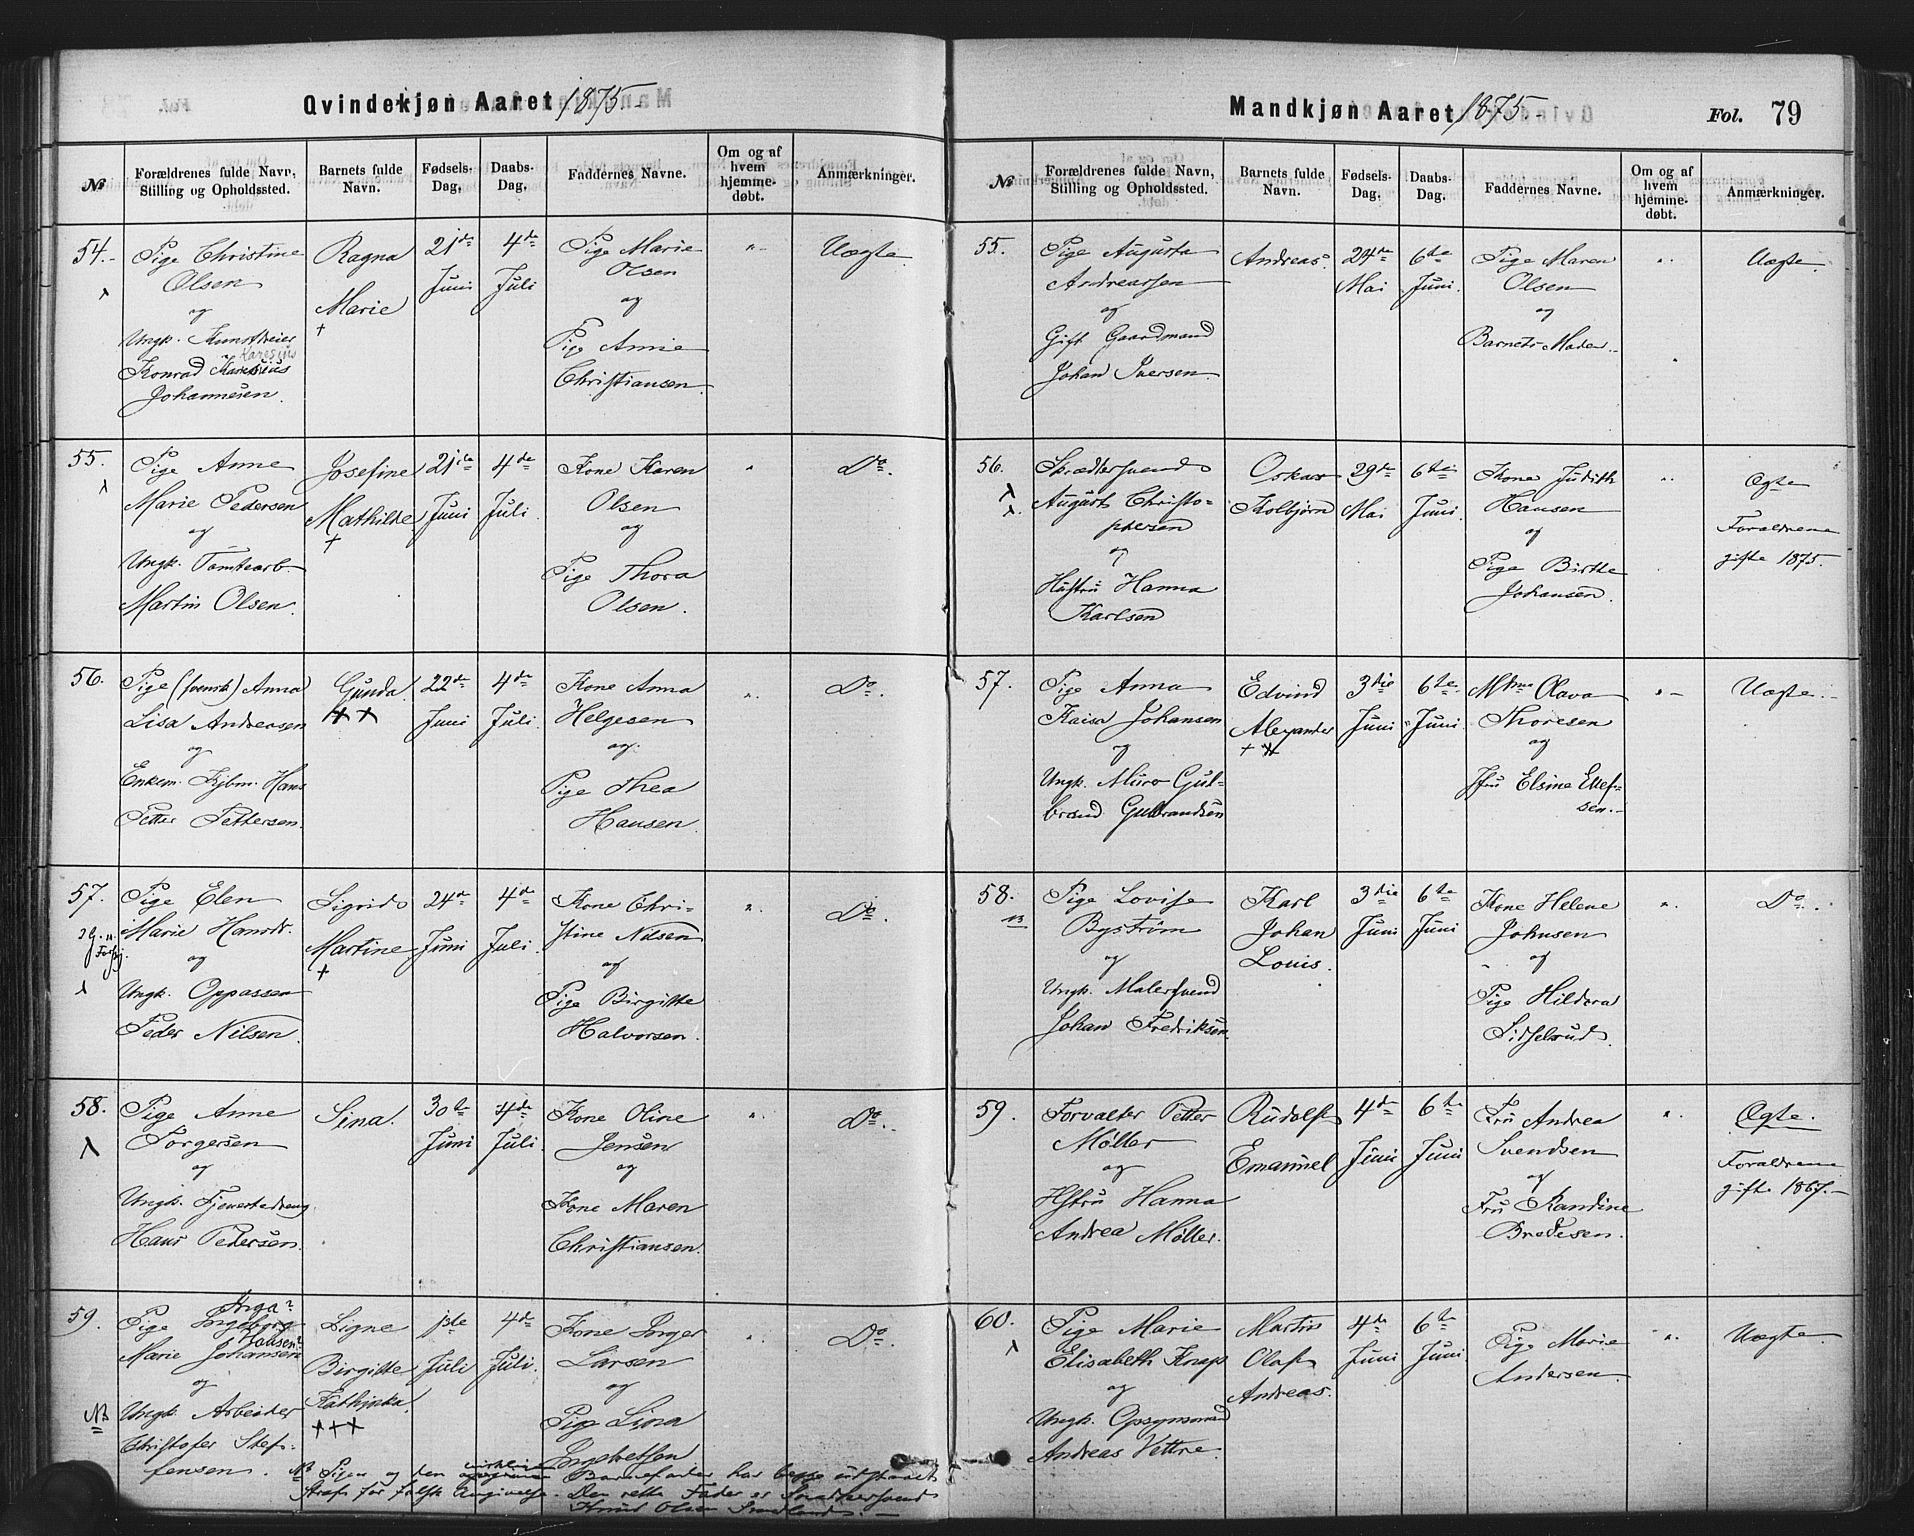 Qvindekjøn Aaret 1875
№
Forældrenes fulde Navn,
Stilling og Opholdssted.
Barnets fulde
Navn.
Fødsels-
Dag,
Daabs-
Dag,
Faddernes Navne.
Om og af
hvem
hjemme-
døbt.
Anmærkninger.
54.
Pige Christine
Olsen
og
Ungk. Kunstdreier
Konrad
Karesius
Johannesen.
Ragna
Marie
21de
Juni
4de
Juli
Pige Marie
Olsen
og
Pige Annie
Christiansen.
Uægte.
55.
Pige Anne
Marie Pedersen
og
Ungk. Tomtearb.
Martin Olsen.
Josefine
Mathilde
21de
Juni
4de
Juli
Kone Karen
Olsen
og
Pige Thora
Olsen.
Do.
56.
Pige (svensk) Anna
Lisa Andersen
og
Enkem. Kjbm. Hans
Petter Pettersen.
Gunda
22de
Juni
4de
Juli
Kone Anna
Helgesen
og
Pige Thea
Hansen.
Do.
57.
Pige Elen
Marie Hansdr.
og
Ungk. Oppasser
Peder Nilsen.
Sigrid
Martine
24de
Juni
4de
Juli
Kone Chri-
stine Nilsen
og
Pige Birgitte
Halvorsen.
Do.
58.
Pige Anne
Torgersen
og
Ungk. Tjenestedreng
Hans Pedersen.
Sina.
30te
Juni
4de
Juli
Kone Oline
Jensen
og
Kone Maren
Christiansen.
Do.
59.
Pige Ingeborg
Hansen?
Marie Johansen
og
NB
Ungk. Arbeider
Christofer Stef-
fensen.
Signe
Birgitte
Kathinka.
1ste
Juli
4de
Juli.
Kone Inger
Larsen
og
Pige Lina
Do.
NB Pigen og den Barnefader har begge udstaaet
Straf for falsk Angivelse. Den rette Fader er Snedkersvend
Knud Olsen
Mandkjøn Aaret 1875
Fol. 79
№
Forældrenes fulde Navn,
Stilling og Opholdssted.
Barnets fulde
Navn.
Fødsels-
Dag.
Daabs-
Dag.
Faddernes Navne.
Om og af
hvem
hjemme-
døbt.
Anmærkninger.
55.
Pige Augusta
Andreassen
og
Gift Gaardmand
Johan Iversen.
Andreas.
24de
Mai
6te
Juni.
Pige Maren
Olsen
og
Barnets Moder.
Uægte.
56.
Skrædersvend
Augusts Christo-
phersen
og
Hustru Hanna
Karlsen
Oskar
Kolbjørn
29de
Mai
6te
Juni.
Kone Judith
Hansen
og
Pige Birthe
Johansen.
Ægte
Forældrene
gifte 1875.
57.
Pige Anna
Kaisa Johansen
og
Ungk. Murer Gul-
brand Gulbrandsen
Edvind
Alexander
3die
Juni
6te
Juni
Mdme Olava
Thoresen
og
Jfru Elsine Ellef-
sen.
Uægte.
58.
NB
Pige Lovise
Bystrøm
og
Ungk. Malersvend
Johan Fredriksen.
Karl
Johan
Louis.
3die
Juni
6te
Juni
Kone Helene
Johnsen
og
Pige Hildora
Sidselrud.
Do.
59.
Forvalter Petter
Møller
og
Hstru Hanna
Andrea Møller.
Rudolf
Emanuel
4de
Juni
6te
Juni
Fru Andrea
Svendsen
og
Fru Randine
Bredesen.
Ægte.
Forældrene
gifte 1867.
60.
Pige Marie
Elisabeth Knap
og
Ungk. Opsynsmand
Andreas Vettre
Martin
Olaf
Andreas.
4de
Juni
6te
Juni
Pige Marie
Andersen.
Uægte.